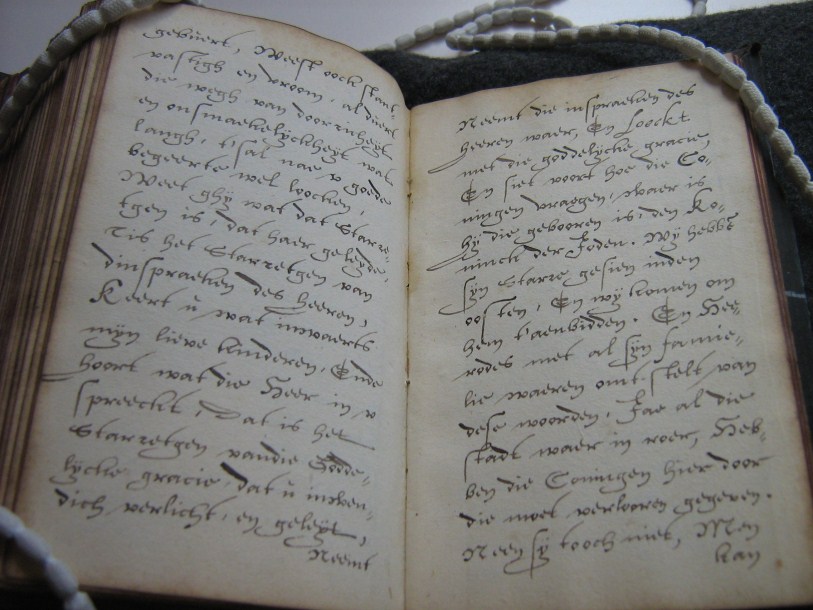 gebüert, Weest oock stant-
vastigh en vroom, al düert
die wegh van doorinheyt
en onsmaekelyckheyt wat
langh, t'sal nae v goede
begeerte wel loocken,
Weet ghÿ wat dat Starre-
tgen is, dat haer geleyde,
Tis het Starretgen van
dinspraeken des heeren,
Keert ü wat inwaerts
mÿn lieve kinderen, Ende
hoort wat die Heer in v
spreeckt, Dat is het
Starretgen vandie Godde-
lycke gracie, dat ü inwen-
dich verlicht, en geleyt,
Neemt
Neemt die inspraeken des
heeren waer, En loockt
met die goddelÿcke gracie,
En siet voort hoe die Co-
ningen vraegen, Waer is
hÿ die gebooren is, den Ko-
ninck der Joden. Wÿ hebbē
sÿn Starre gesien inden
oosten, En wÿ komen om
hem t'aenbidden. En Hee-
rodes met al sÿn famie-
lie waeren omt, stelt van
dese woorden, Jae al die
stadt waer in roer, Heb-
ben die Coningen hier door
die moet verlooren gegeven.
Neen sÿ tooch niet, Men
kan